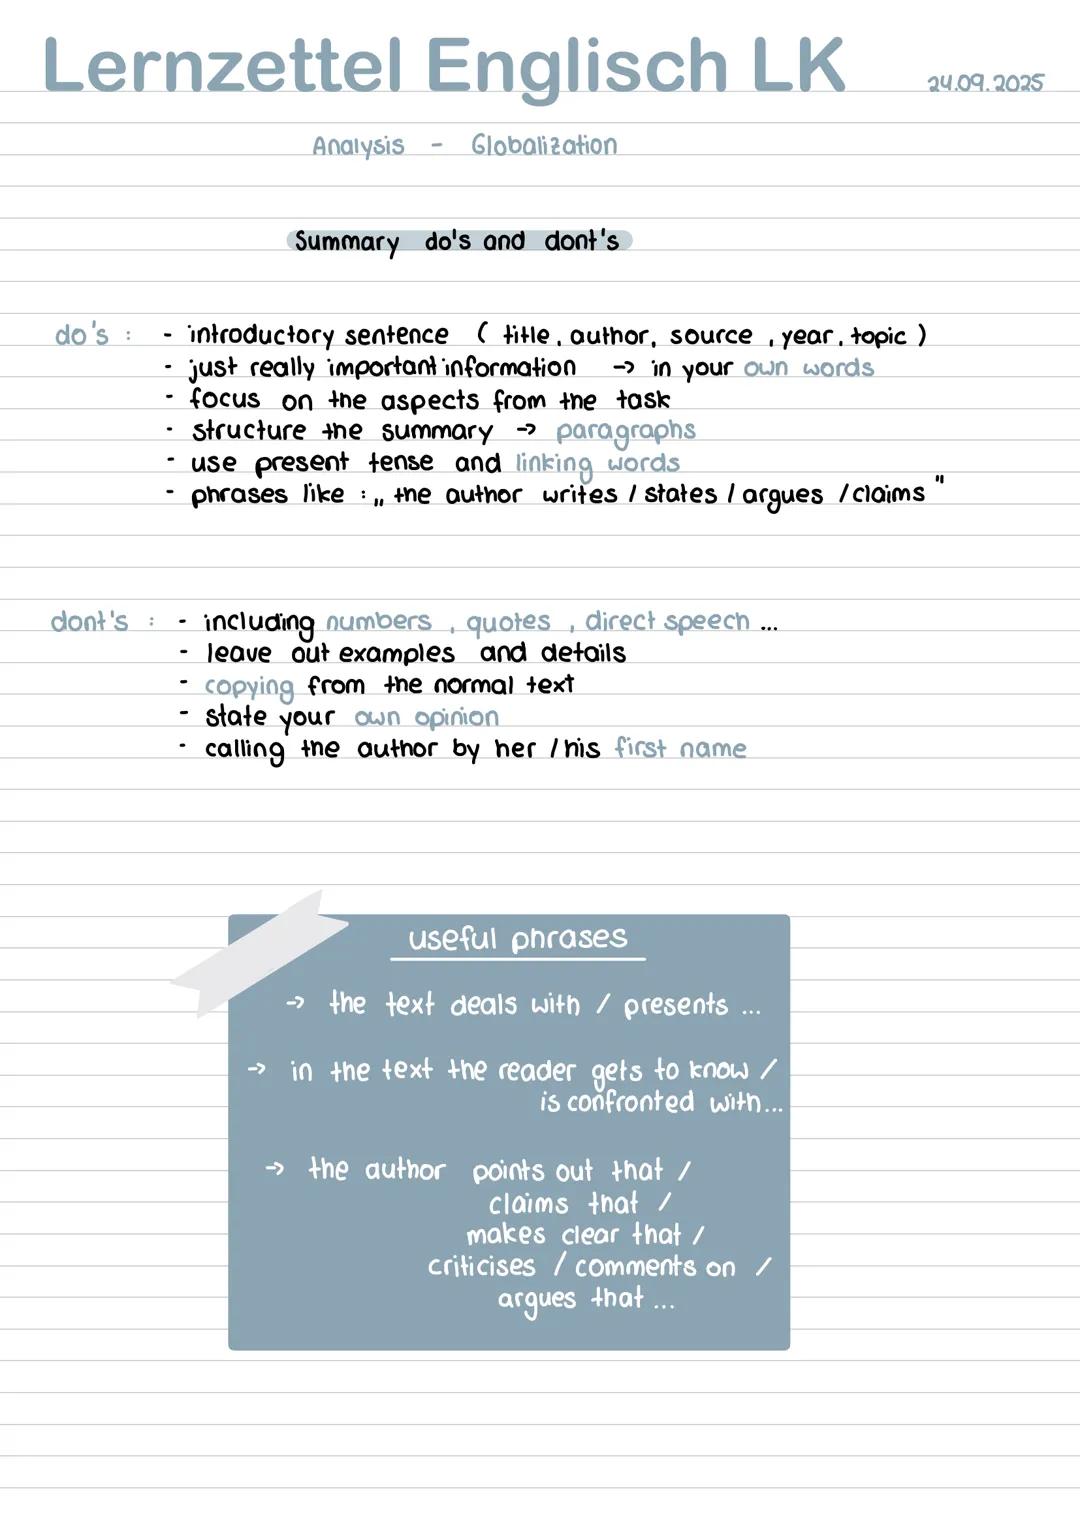 Lernzettel Englisch LK 24.09.2025
Analysis - Globalization
Summary do's and dont's
do's : - introductory sentence ( title, author, source, year, topic )
- just really important information -> in your own words
- focus on the aspects from the task
- structure the summary -> paragraphs
- use present tense and linking words
- phrases like : „ the author writes / states / argues / claims "
dont's : - including numbers , quotes , direct speech ...
- leave out examples and details
- copying from the normal text
- state your own opinion
- calling the author by her / his first name
useful phrases
-> the text deals with / presents ...
-> in the text the reader gets to know /
is confronted with...
-> the author points out that /
claims that /
makes clear that /
criticises / comments on /
argues that ...